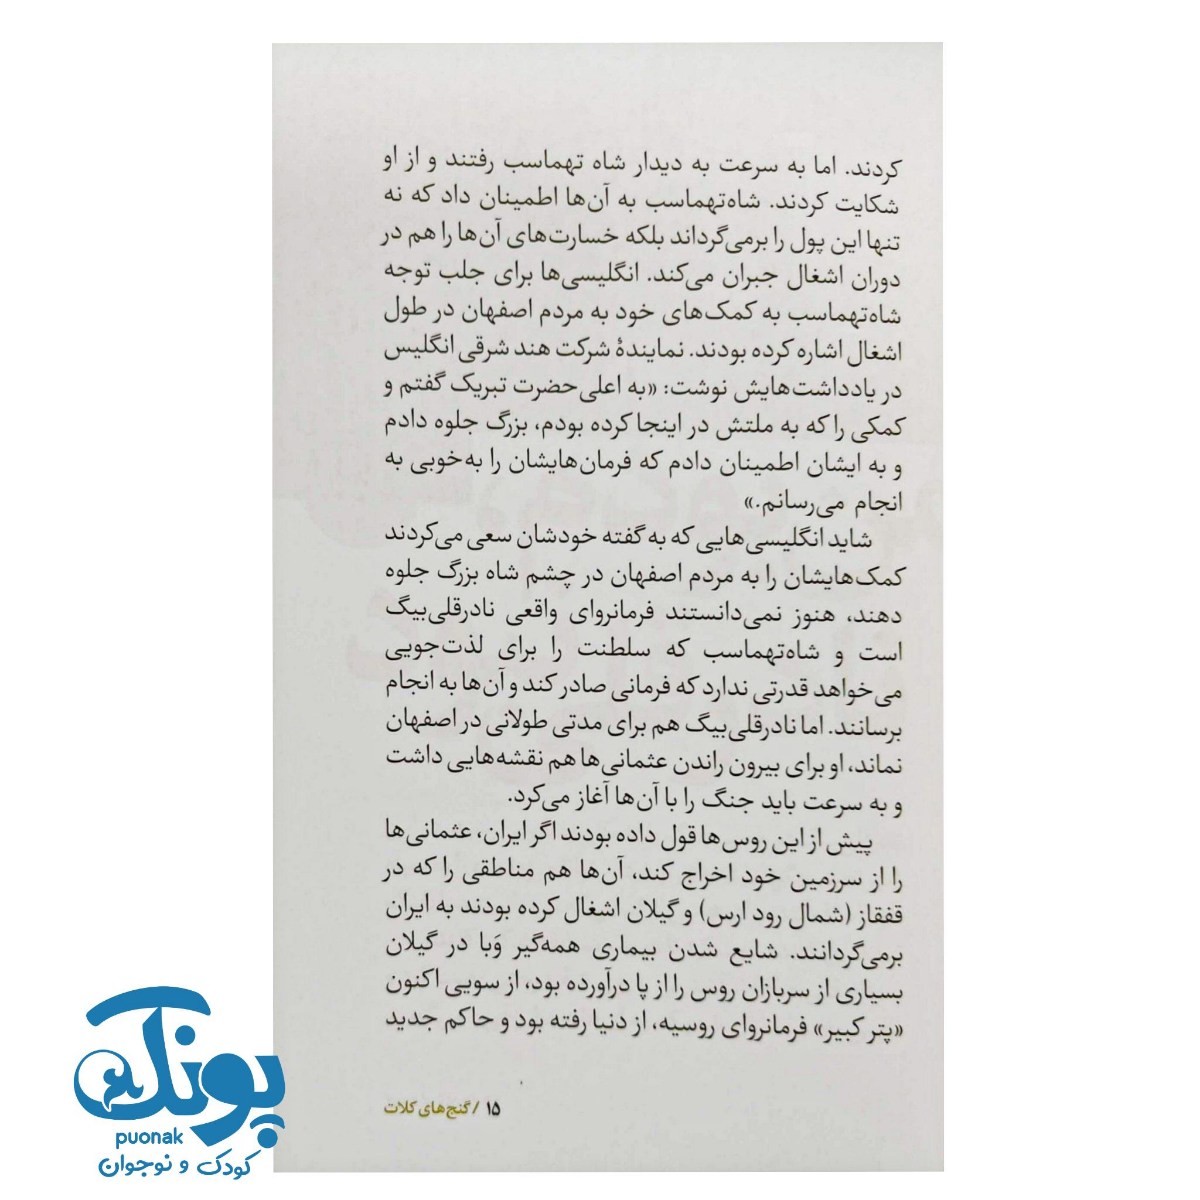 کردند. اما به سرعت به دیدار شاه تهماسب رفتند و از او
شکایت کردند. شاه‌تهماسب به آن‌ها اطمینان داد که نه
تنها این پول را برمی‌گرداند بلکه خسارت‌های آن‌ها را هم در
دوران اشغال جبران می‌کند. انگلیسی‌ها برای جلب توجه
شاه‌تهماسب به کمک‌های خود به مردم اصفهان در طول
اشغال اشاره کرده بودند. نمایندهٔ شرکت هند شرقی انگلیس
در یادداشت‌هایش نوشت: «به اعلی‌حضرت تبریک گفتم و
کمکی را که به ملتش در اینجا کرده بودم، بزرگ جلوه دادم
و به ایشان اطمینان دادم که فرمان‌هایشان را به‌خوبی به
انجام می‌رسانم.»
شاید انگلیسی‌هایی که به گفته خودشان سعی می‌کردند
کمک‌هایشان را به مردم اصفهان در چشم شاه بزرگ جلوه
دهند، هنوز نمی‌دانستند فرمانروای واقعی نادرقلی‌بیگ
است و شاه‌تهماسب که سلطنت را برای لذت‌جویی
می‌خواهد قدرتی ندارد که فرمانی صادر کند و آن‌ها به انجام
برسانند. اما نادرقلی‌بیگ هم برای مدتی طولانی در اصفهان
نماند، او برای بیرون راندن عثمانی‌ها هم نقشه‌هایی داشت
و به سرعت باید جنگ را با آن‌ها آغاز می‌کرد.
پیش از این روس‌ها قول داده بودند اگر ایران، عثمانی‌ها
را از سرزمین خود اخراج کند، آن‌ها هم مناطقی را که در
قفقاز (شمال رود ارس) و گیلان اشغال کرده بودند به ایران
برمی‌گردانند. شایع شدن بیماری همه‌گیر وَبا در گیلان
بسیاری از سربازان روس را از پا درآورده بود، از سویی اکنون
«پتر کبیر» فرمانروای روسیه، از دنیا رفته بود و حاکم جدید
۱۵ / گنج‌های کلات
پونک
puonak
کودک و نوجوان